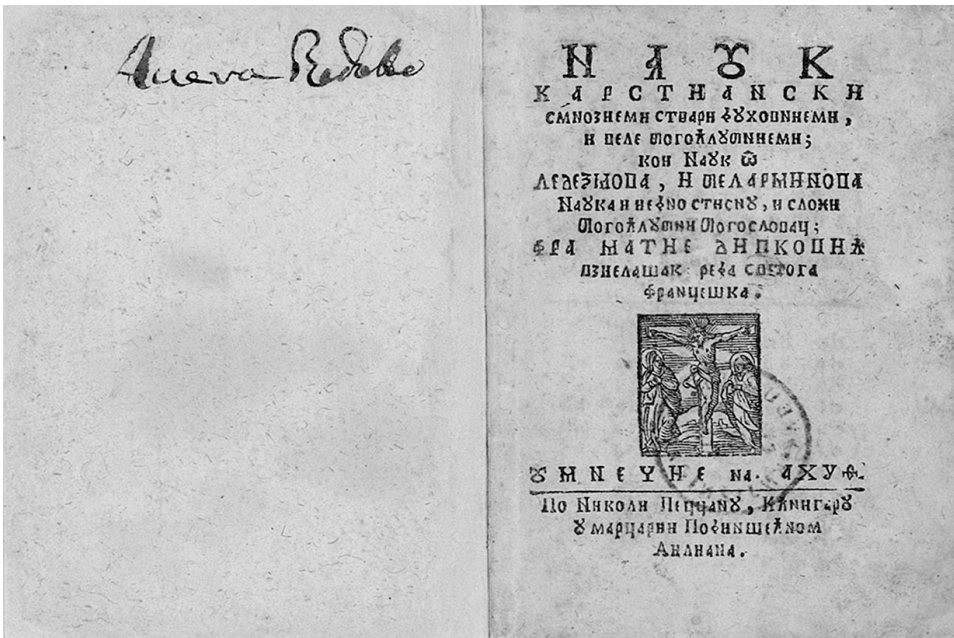 НАꙊК
КАРСТИАНСКИ
СМНОЗИЕМИ СТВАРИ ДꙊХОВНИЕМИ,
И ВЕЛЕ БОГОꙉЛꙊБНИЕМИ;
КОИ НАꙊК Ѿ
ЛЕДЕЗМОВА, И БЕЛАРМИНОВА
НАꙊКА И ИЕДНО СТИСНꙊ, И СЛОЖИ
БОГОꙉЛꙊБНИ БОГОСЛОВАЦ;
ФРА МАТИЕ ДИВКОВИꙉ
ИЗИЕЛАШАК РЕДА СВЕТОГА
ФРАНЦЕШКА.
ꙊМНЕЧИЕ НА.
ПО НИКОЛИ ПЕЦЦАНꙊ, КꙉНИГАРꙊ
Ꙋ МАРЦАРИИ ПОДИНШЕꙉНОМ